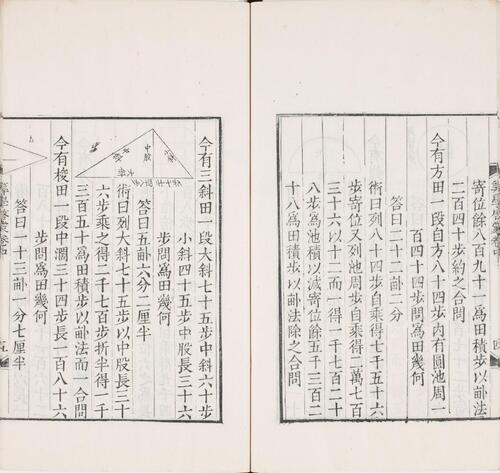 寄位餘八百九十一爲田積步以畝法
二百四十步約之合問
今有方田一段自方八十四步內有圓池周一
百四十四步問爲田幾何
答曰二十二畝二分
術曰列八十四步自乘得七千五十六
步寄位又列池周步自乘得二萬七百
三十六以十二而一得一千七百二十
八步爲池積以減寄位餘五千三百二
十八爲田積步以畝法除之合問
四
今有三斜田一段大斜七十五步中斜六十步
小斜四十五步中股三十六
步問爲田幾何
中股
答曰五畝六分二厘半
術曰列大斜七十五步以中股長三十
六步乘之得二千七百步折半得一千
三百五十爲田積步以畝法而一合問
今有梭田一段中濶三十四步長一百八十六
步問爲田幾何
答曰一十三畝一分七厘半
五